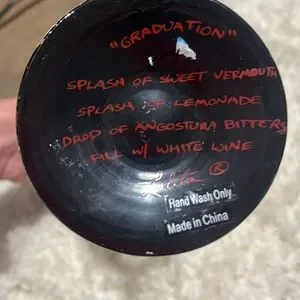 "GRADUATION"
SPLASH OF SWEET VERMOUTH
SPLASH OF LEMONADE
DROP OF ANGOSTURA BITTERS
FILL W/ WHITE WINE
Lolita ®
Hand Wash Only
Made in China